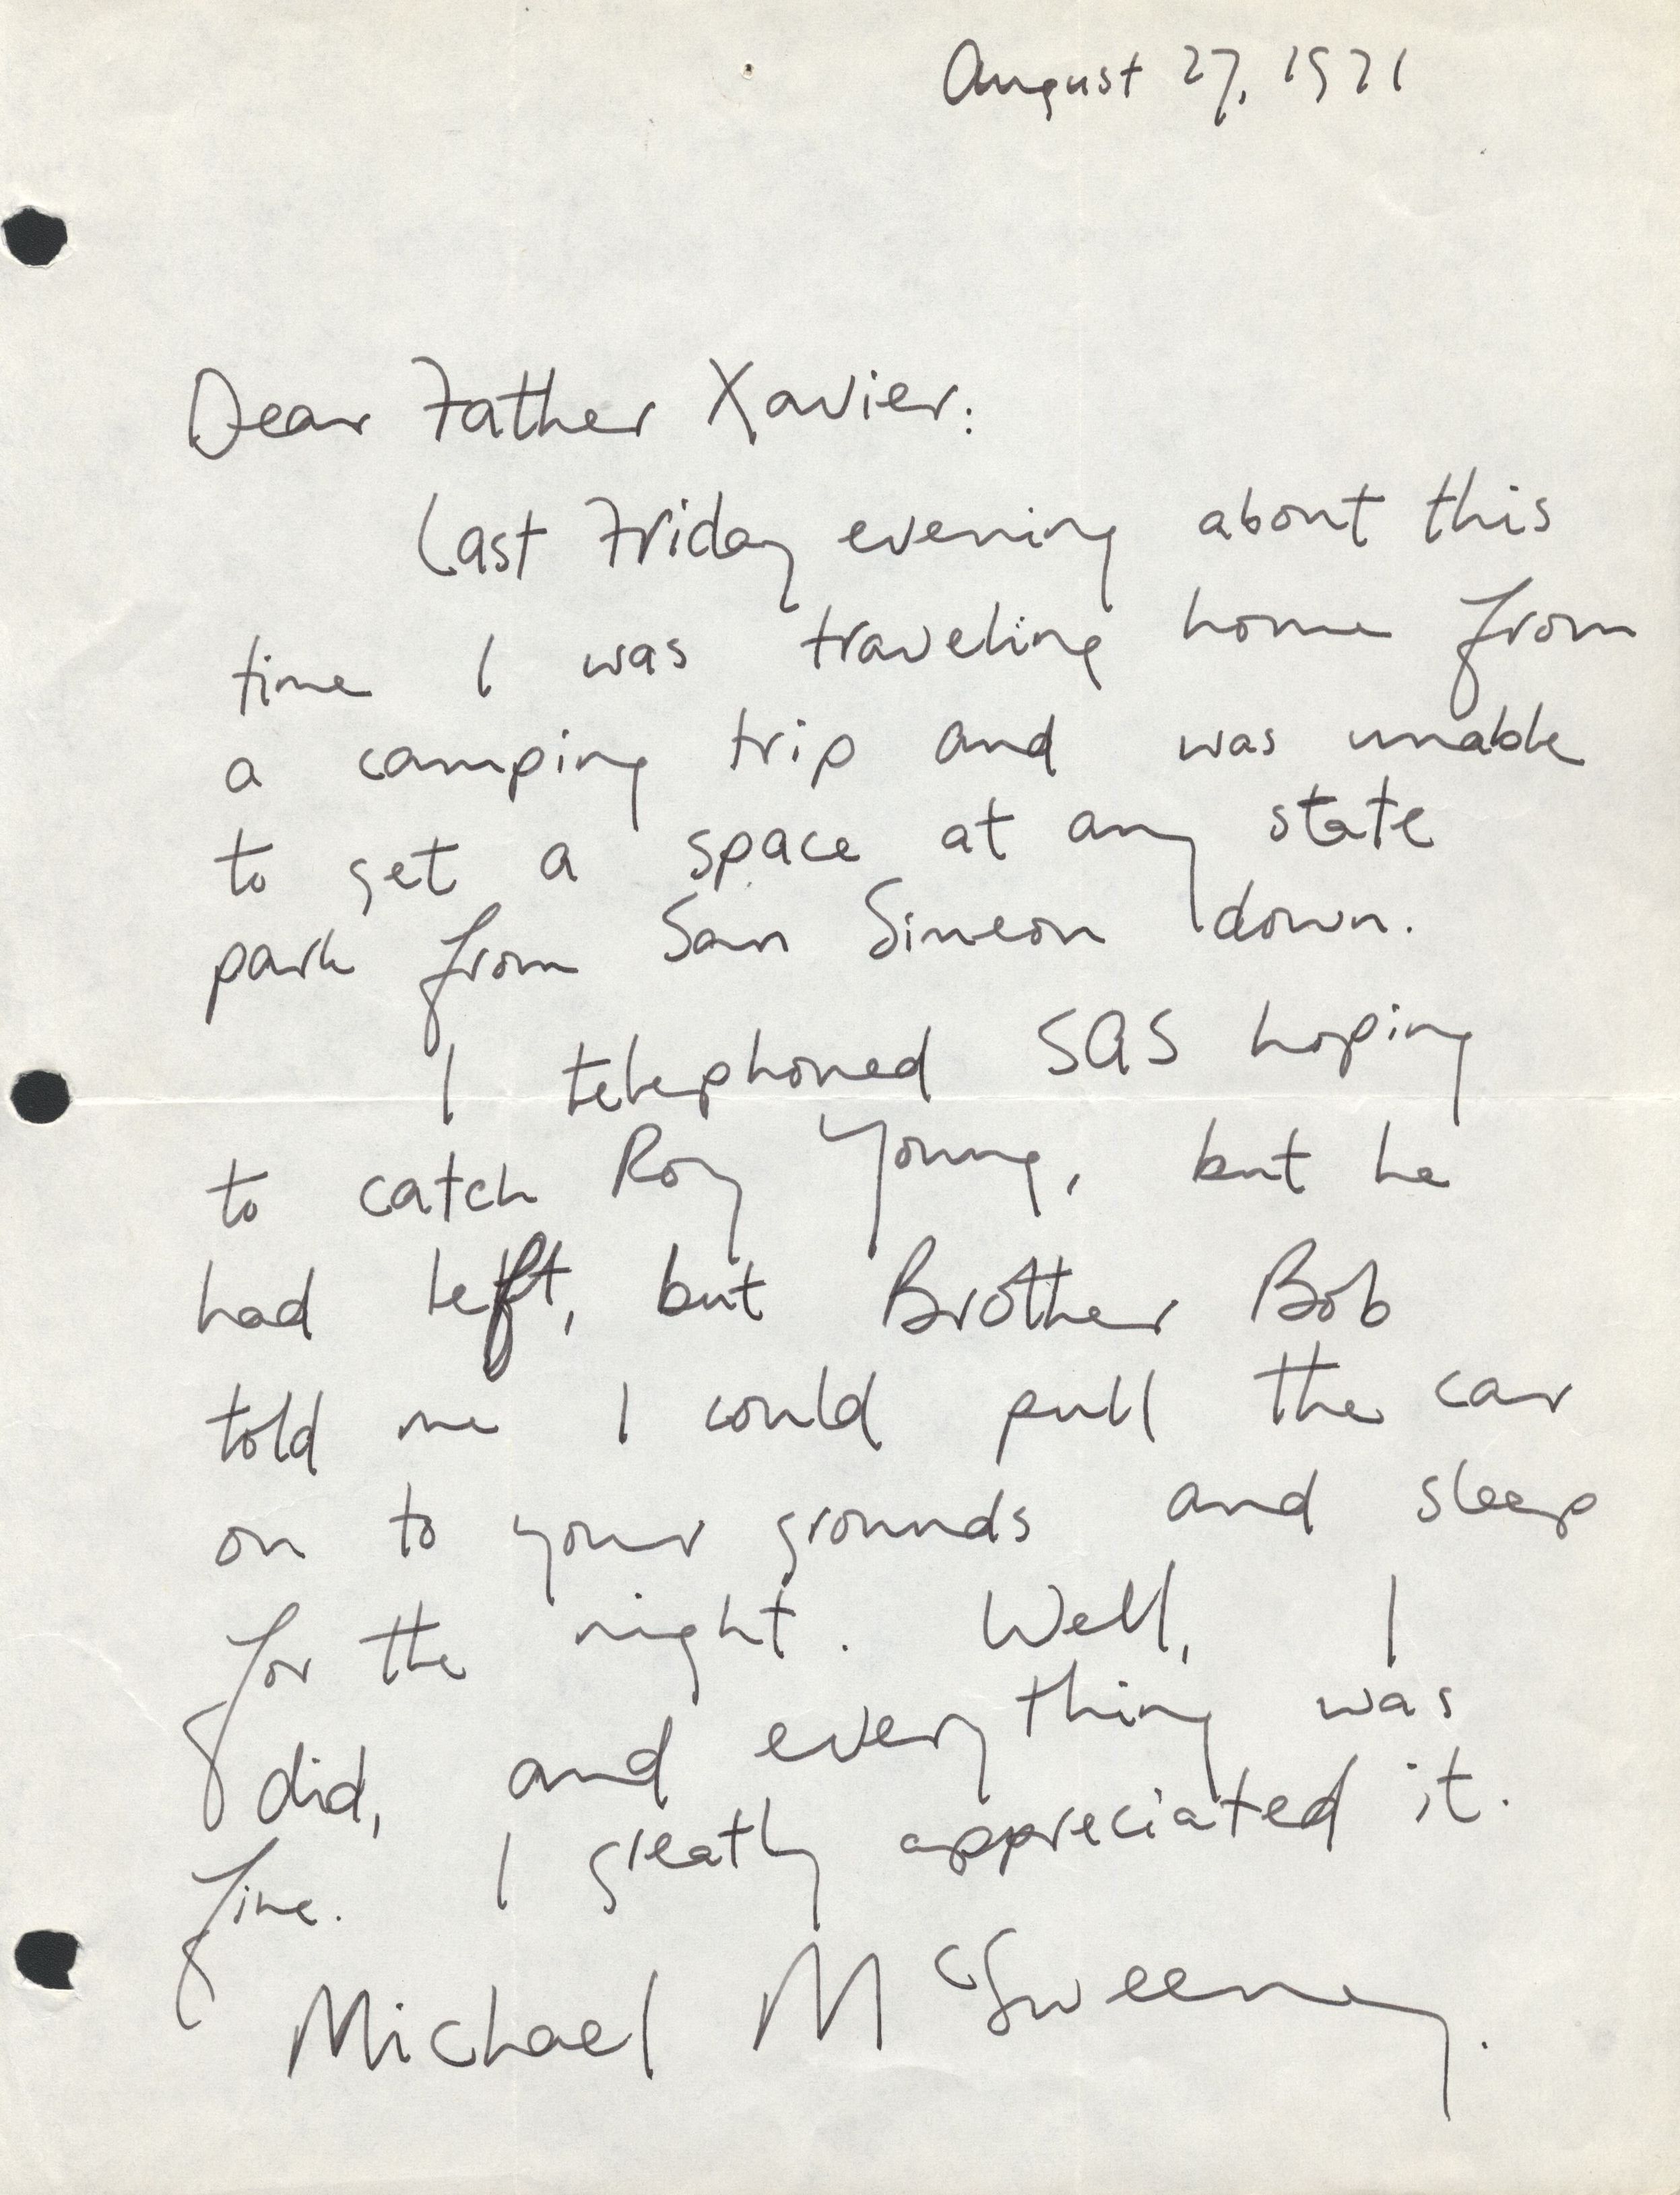 August 27, 1971
Dear Father Xavier:
Last Friday evening about this
time I was traveling home from
a camping trip and was unable
to get a space at any state
park from San Simeon down.
I telephoned SAS hoping
to catch Roy Young, but he
had left, but Brother Bob
told me I could pull the car
on to your grounds and sleep
for the night. Well, I
did, and everything was
fine. I greatly appreciated it.
Michael McSweeney.